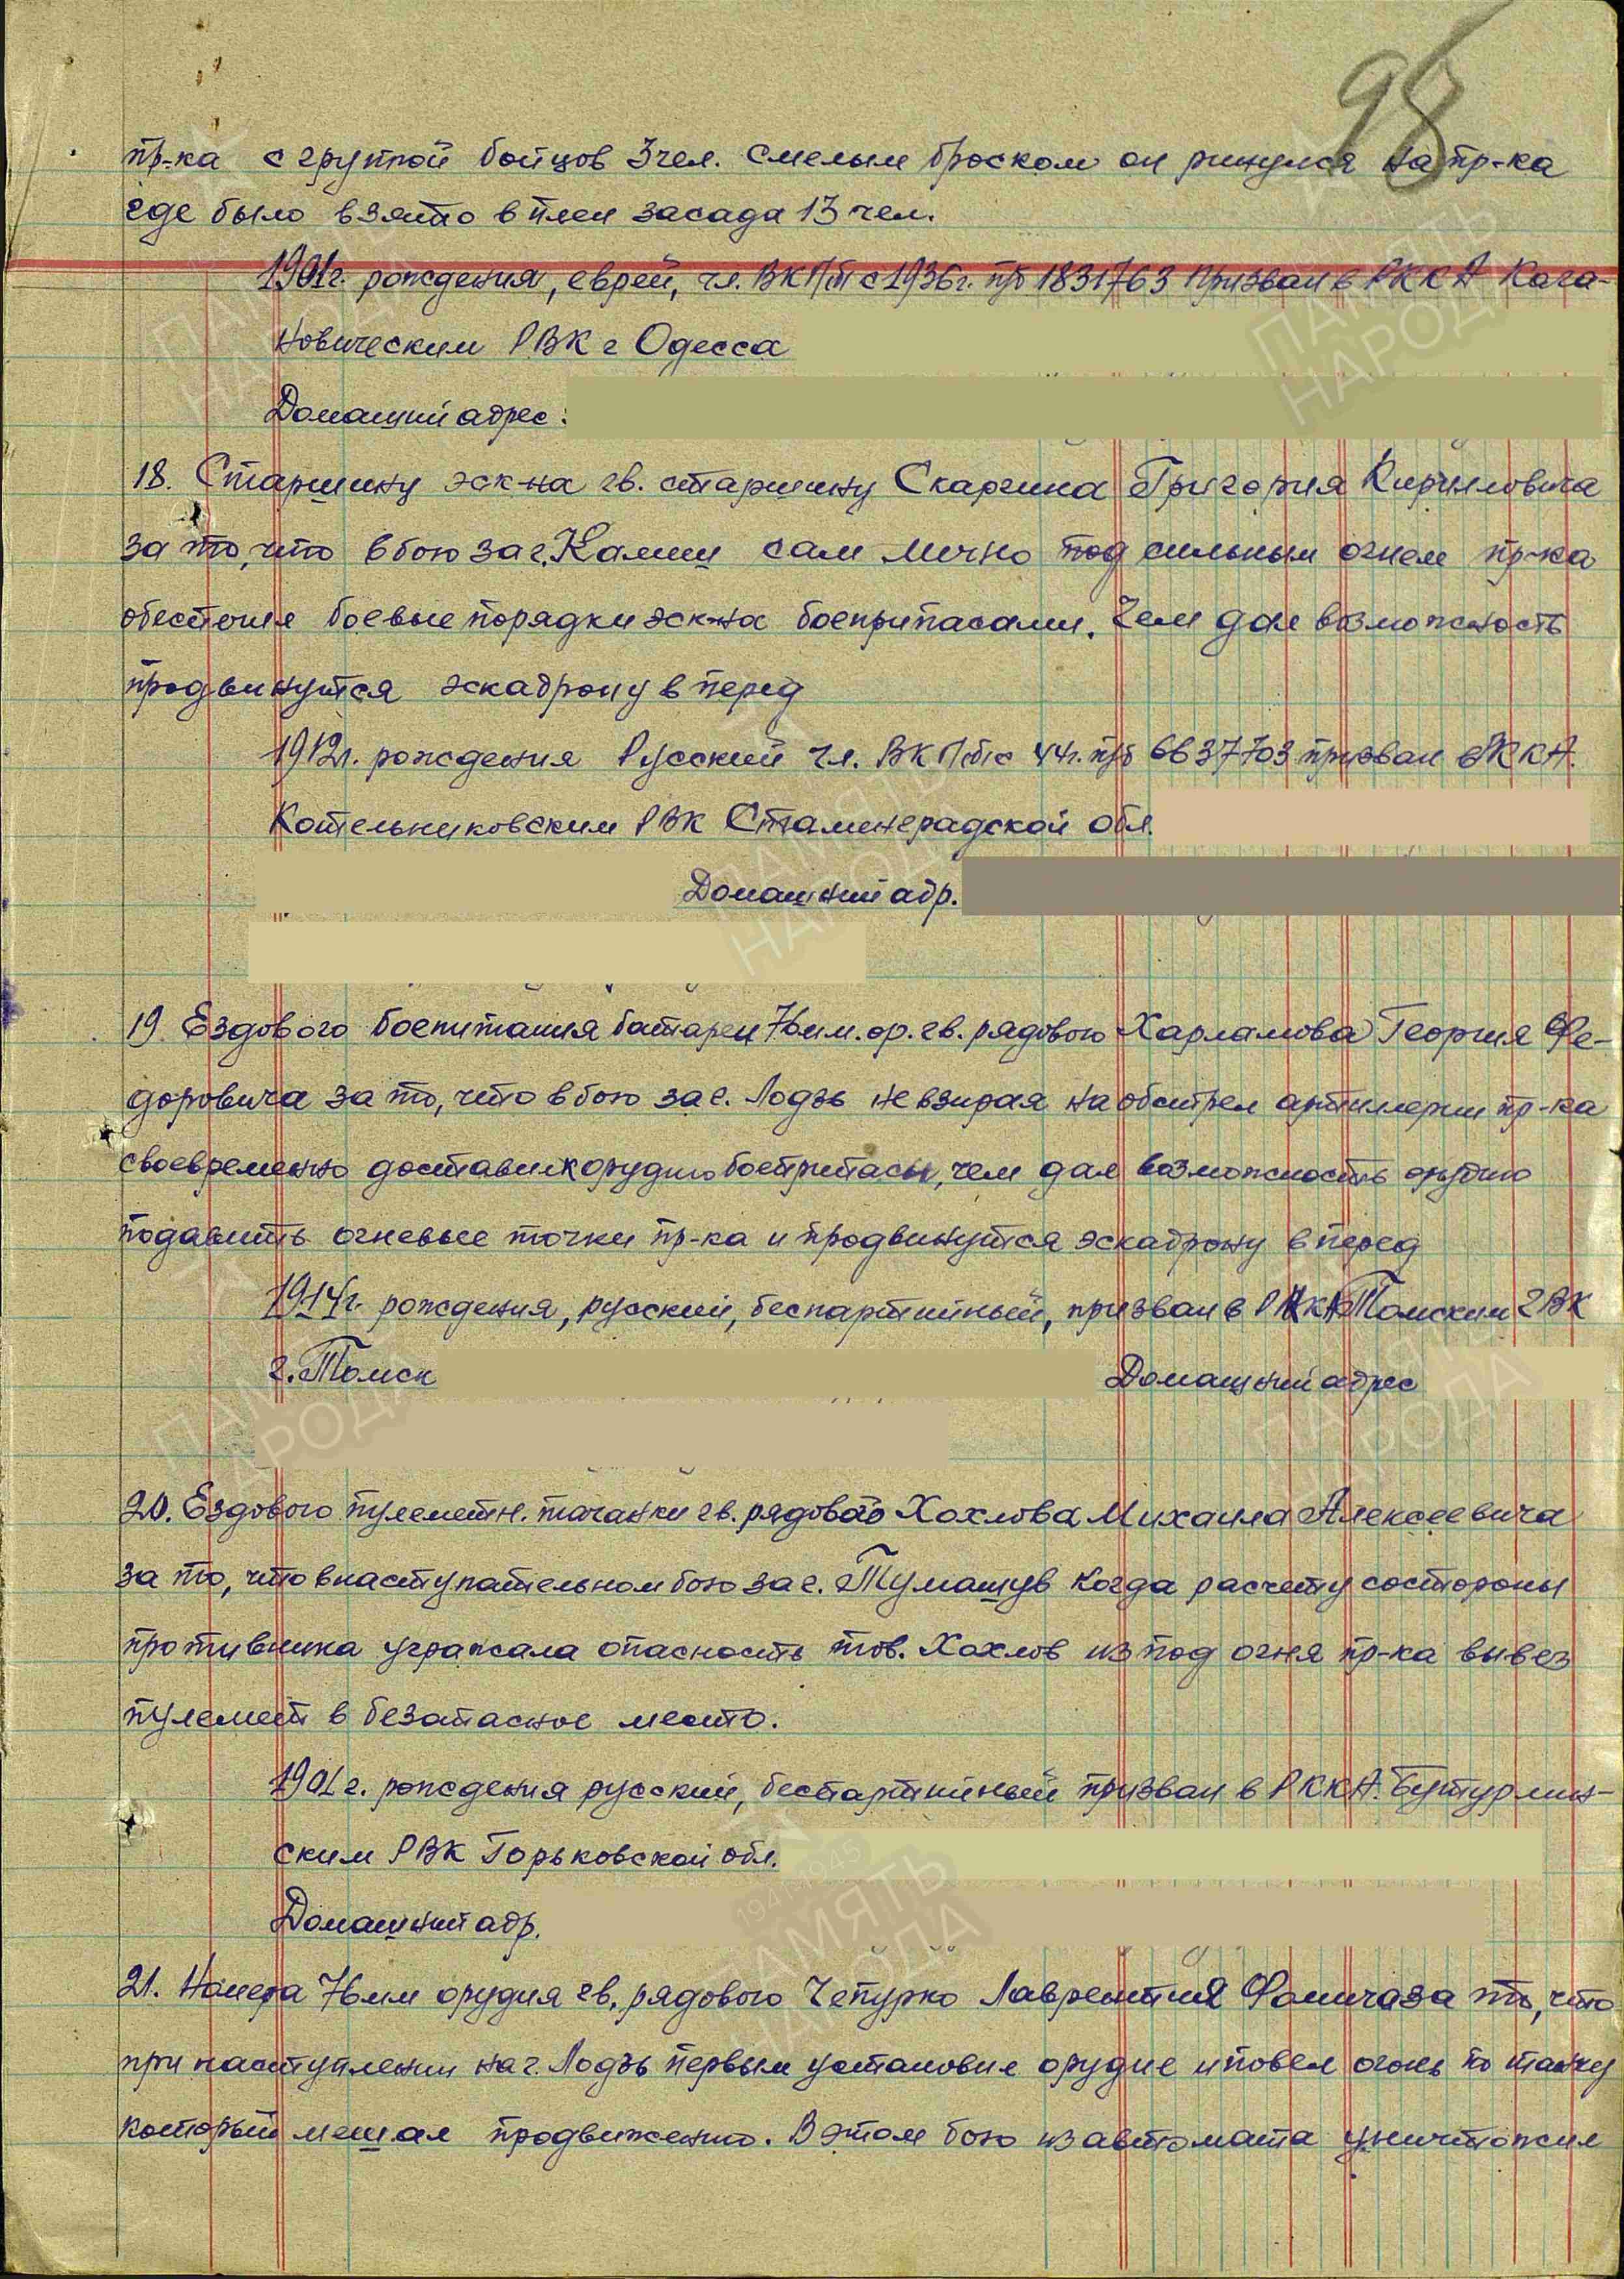 98
пр-ка с группой бойцов 3 чел. смелым броском он ринулся на пр-ка
где было взято в плен засада 13 чел.
1901г. рождения, еврей, чл. ВКП/б/ с 1936г. п/б 1831763 призван в РККА Кага-
новическим РВК г Одесса
Домашний адрес:
18. Старшину эск-на гв. старшину Скаргина Григория Кирилловича
за то, что в бою за г. Калиш сам лично под сильным огнем пр-ка
обеспечил боевые порядки эск-на боеприпасами. Чем дал возможность
продвинутся эскадрону в перед
1912г. рождения Русский чл. ВКП/б/с 44г. п/б 6637703 призван в РККА.
Котельниковским РВК Сталинградской обл.
Домашний адр.
19. Ездового боепитания батареи 76 мм. ор. гв. рядового Харламова Георгия Фе-
доровича за то, что в бою за г. Лодзь не взирая на обстрел артилерии пр-ка
своевременно доставил к орудию боеприпасы, чем дал возможность орудию
подавить огневые точки пр-ка и продвинутся эскадрону в перед
1914г. рождения, русский, беспартийный, призван в РККА Томским ГВК
г. Томск
Домашний адрес
20. Ездового пулеметн. тачанки гв. рядового Хохлова Михаила Алексеевича
за то, что в наступательном бою за г. Тумашув когда расчету состороны
противника угражала опасность тов. Хохлов из под огня пр-ка вывез
пулемет в безапасное место.
1901г. рождения русский, беспартийный призван в РККА. Бутурлин-
ским РВК Горьковской обл.
Домашний адр.
21. Номера 76 мм орудия гв. рядового Чепурко Лаврентия Фомича за то, что
при наступлении на г. Лодзь первым установил орудие и повел огонь по танку
который мешал продвижению. В этом бою из автомата уничтожил
ПАМЯТЬ
НАРОДА
1941-1945